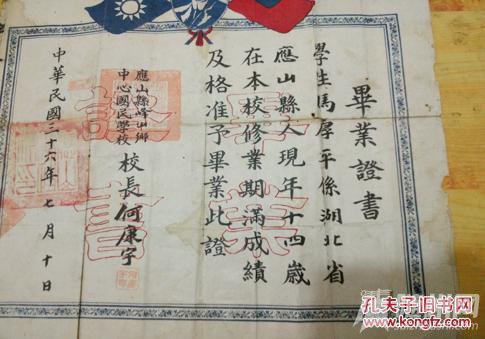 畢業證書
學生馬厚平係湖北省
應山縣人現年十四歲
在本校修業期滿成績
及格准予畢業此證
應山縣峰山鄉
中心國民學校
校長何康宇
中華民國三十六年七月十日
畢業
證書
孔夫子旧书网